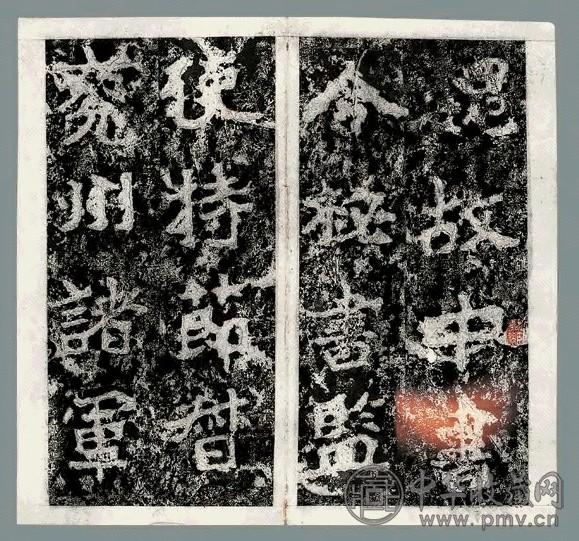 故中書
令秘書監
使持節督
兗州諸軍
中华收藏网
www.pmv.cn